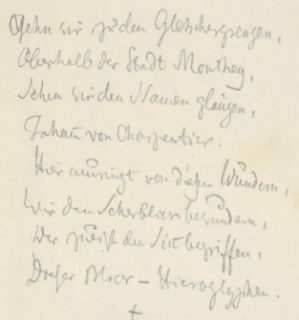 Gehn wir zu den Gletschergrenzen,
Oberhalb der Stadt Monthey,
Sehen wir den Namen glänzen,
Johann von Charpentier.
Hier umringt von diesen Wundern,
Wir den Scherblick bewundern,
Der zuerst den Sinn begriffen,
Dieser Moor - Hieroglyphen.